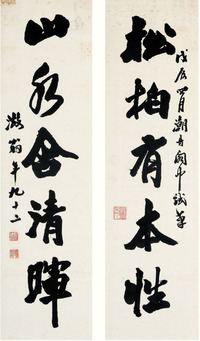 松柏有本性
山水含清暉
戊辰四月潮音閣中試筆
凝翁年九十二